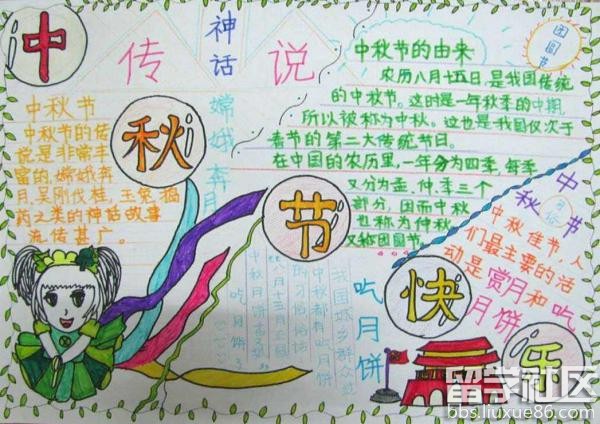 中
秋
节
快
乐
神
话
传
说
嫦娥奔月
中秋节
中秋节的传
说是非常丰
富的,嫦娥奔
月,吴刚伐桂,玉兔捣
药之类的神话故事
流传甚广。
团圆节
中秋节的由来
农历八月十五日,是我国传统
的中秋节。这时是一年秋季的中期,
所以被称为中秋。这也是我国仅次于
春节的第二大传统节日。
在中国的农历里,一年分为四季,每季
又分为孟,仲,季三个
部分,因而中秋
也称为仲秋
又称团圆节。
中秋节
中秋佳节,人
们最主要的活
动是赏月和吃
月饼
吃月饼
中秋都有吃月饼
的习俗俗话
吃月饼
留学社区
bbs.liuxue86.com